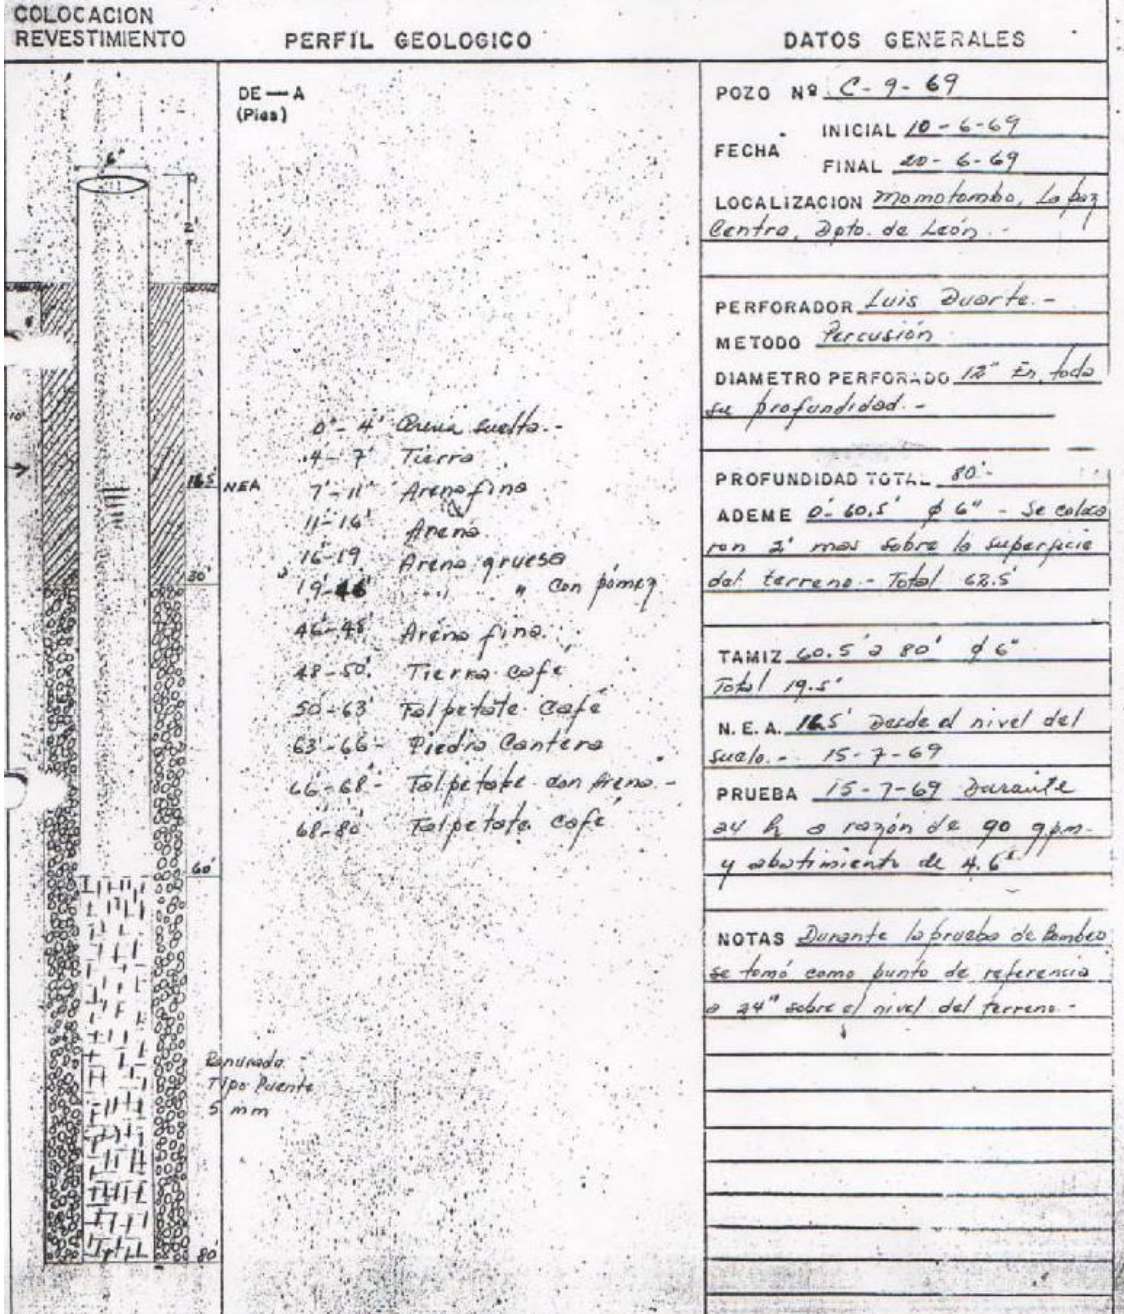 COLOCACION
REVESTIMIENTO
6"
2'
10'
16.5'
30'
60'
80'
Ranurado
Tipo Puente
5 mm
PERFIL GEOLOGICO
DE — A
(Pies)
NEA
0'- 4' Arena suelta.-
4 - 7' Tierra
7'- 11' Arena fina
11 - 16' Arena
16 - 19 Arena gruesa
19'- 46' " " con pómez
46'- 48' Arena fina.
48 - 50' Tierra café
50 - 63' Talpetate café
63'- 66 - Piedra Cantera
66 - 68'- Talpetate con Arena.-
68 - 80' Talpetate café
DATOS GENERALES
POZO Nº C - 9 - 69
FECHA
INICIAL 10 - 6 - 69
FINAL 20 - 6 - 69
LOCALIZACION Momotombo, La paz
Centro, Dpto. de León.-
PERFORADOR Luis Duarte.-
METODO Percusión
DIAMETRO PERFORADO 12" En toda
su profundidad.-
PROFUNDIDAD TOTAL 80'-
ADEME 0'- 60.5' ϕ 6" - Se coloca
ron 2' mas sobre la superficie
del terreno.- Total 62.5'
TAMIZ 60.5' a 80' ϕ 6"
Total 19.5'
N. E. A. 16.5' Desde el nivel del
suelo.- 15 - 7 - 69
PRUEBA 15 - 7 - 69 Durante
24 h a razón de 90 gpm.
y abatimiento de 4.6'
NOTAS Durante la prueba de Bombeo
se tomó como punto de referencia
a 24" sobre el nivel del terreno.-